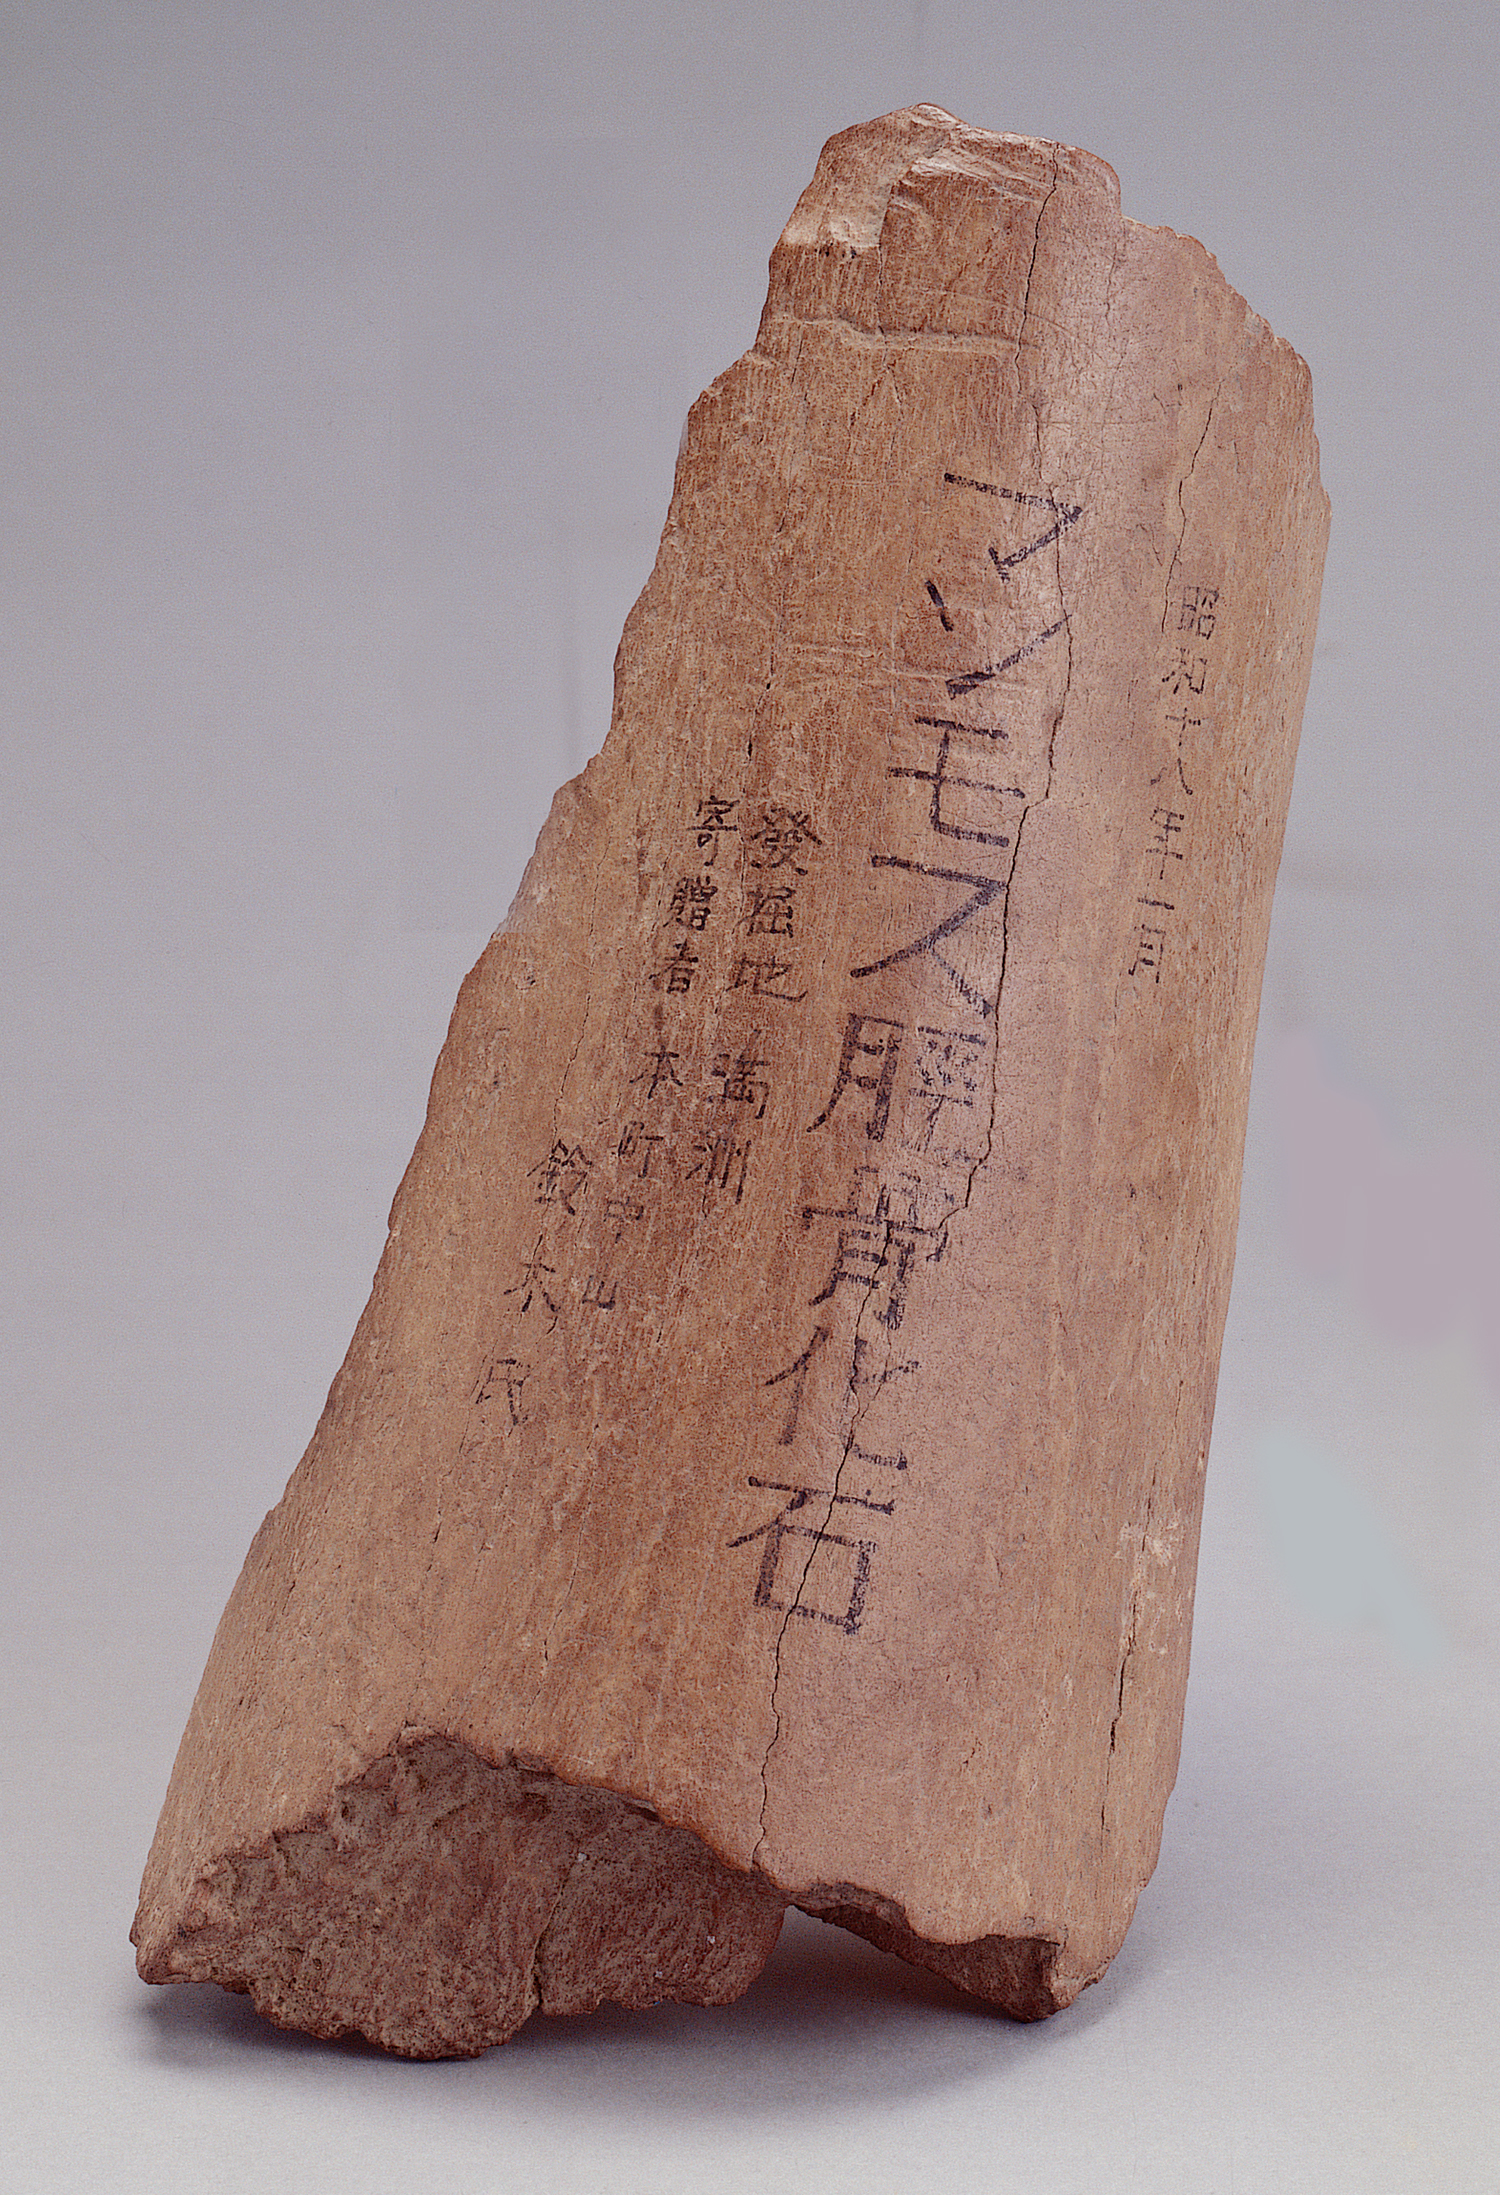 昭和十八年十一月
マンモス脛骨化石
發掘地 満洲
寄贈者 本町中山
鈴木氏